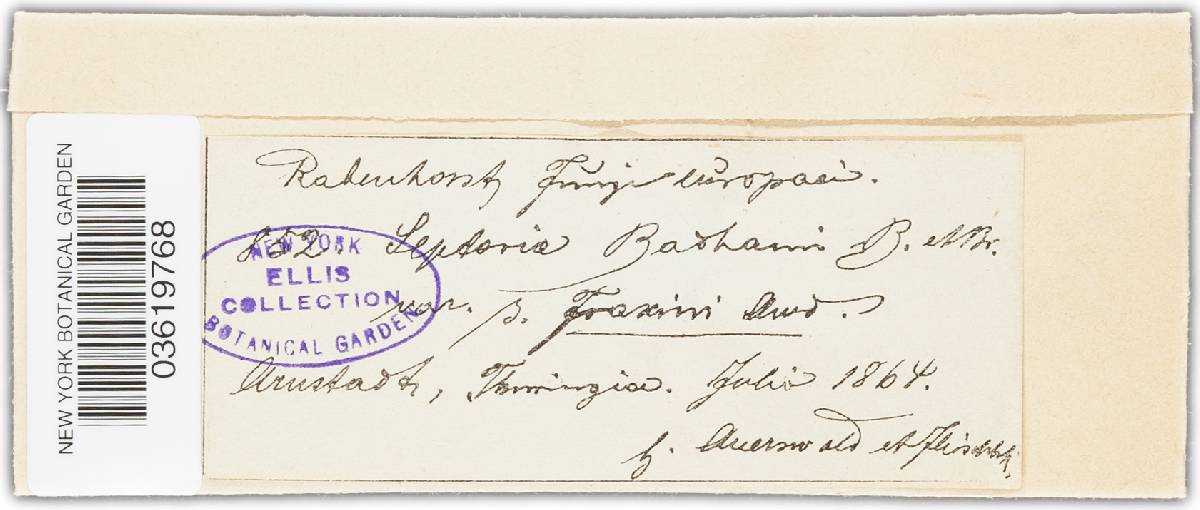 NEW YORK BOTANICAL GARDEN
03619768
Rabenhorst, Fungi europaei.
852. Septoria Badhami B. et Br.
var. β. Fraxini Awd.
Arnstadt, Thuringia. Julio 1864.
Auerswald et
NEW YORK
ELLIS
COLLECTION
BOTANICAL GARDEN